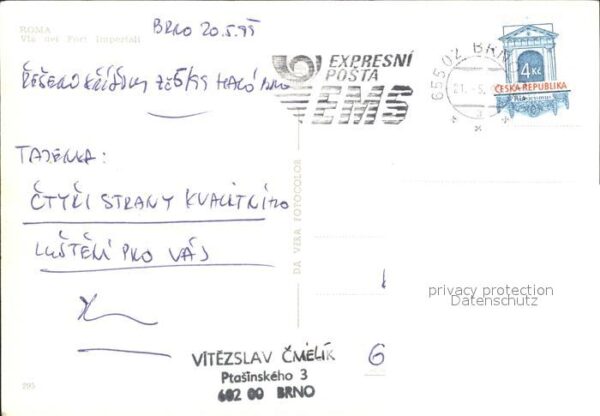 ROMA
Via dei Fori Imperiali
BRNO 20.5.95
ŘEŠENÍ KŘÍŽOVKY ZE 5/95
TAJENKA:
ČTYŘI STRANY KVALITNÍHO
LUŠTĚNÍ PRO VÁS
295
DA VERA FOTOCOLOR
EXPRESNÍ
POŠTA
EMS
65502 BRNO
21.-5.
4 Kč
ČESKÁ REPUBLIKA
privacy protection
Datenschutz
VÍTĚZSLAV ČMELÍK
Ptašinského 3
602 00 BRNO